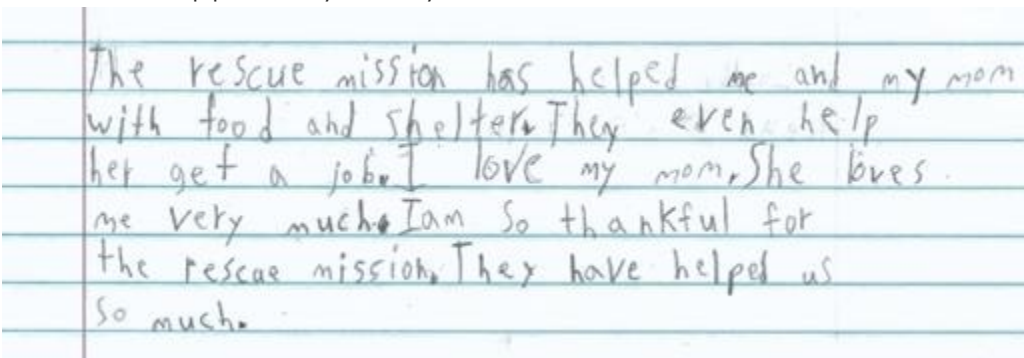 The rescue mission has helped me and my mom
with food and shelter. They even help
her get a job. I love my mom. She loves
me very much. I am so thankful for
the rescue mission. They have helped us
so much.